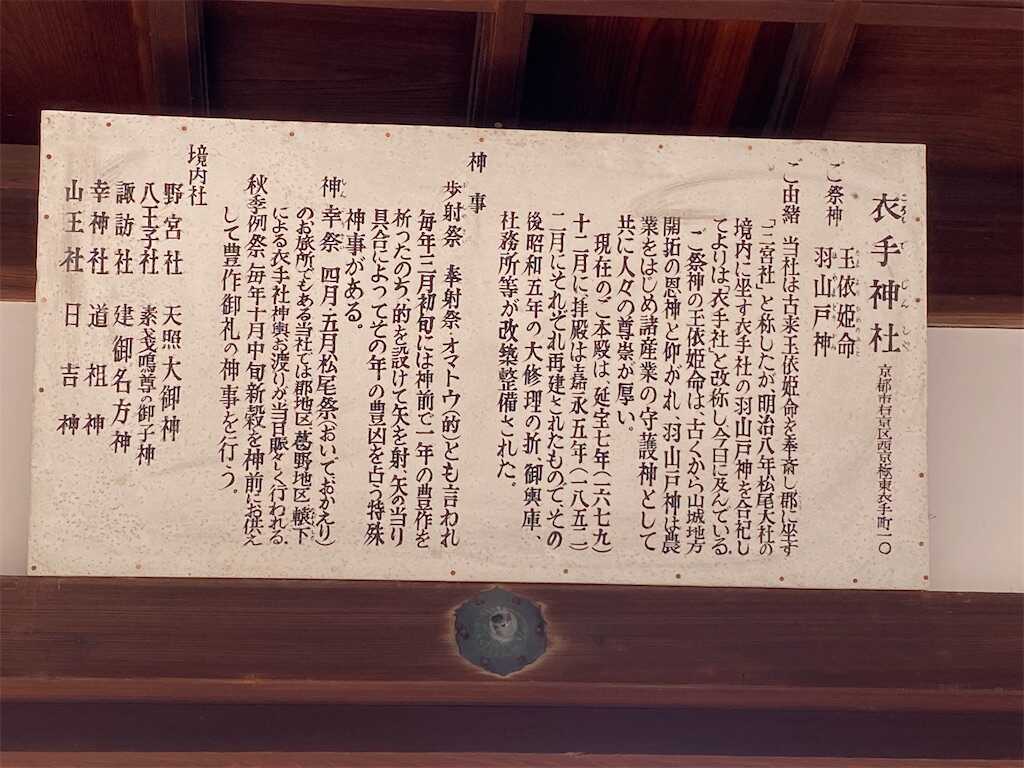 衣手神社 京都市右京区西京極東衣手町一〇
ご祭神 玉依姫命
羽山戸神
ご由緒 当社は古来玉依姫命を奉斎し郡に坐す
「三宮社」と称したが明治八年松尾大社の
境内に坐す衣手社の羽山戸神を合祀し
てよりは、衣手社と改称し今日に及んでいる。
ご祭神の玉依姫命は、古くから山城地方
開拓の恩神と仰がれ、羽山戸神は農
業をはじめ諸産業の守護神として
共に人々の尊崇が厚い。
現在のご本殿は、延宝七年(一六七九)
十二月に拝殿は嘉永五年(一八五二)
二月にそれぞれ再建されたもので、その
後昭和五年の大修理の折、御輿庫、
社務所等が改築整備された。
神事
歩射祭 奉射祭・オマトウ(的)とも言われ
毎年二月初旬には神前で一年の豊作を
祈ったのち、的を設けて矢を射、矢の当り
具合によってその年の豊凶を占う特殊
神事がある。
神幸祭 四月・五月松尾祭(おいでおかえり)
のお旅所でもある当社では郡地区、葛野地区、轅下
による衣手社神輿お渡りが当日賑々しく行われる。
秋季例祭、毎年十月中旬新穀を神前にお供え
して豊作御礼の神事を行う。
境内社
野宮社 天照大御神
八王子社 素戔嗚尊の御子神
諏訪社 建御名方神
幸神社 道祖神
山王社 日吉神